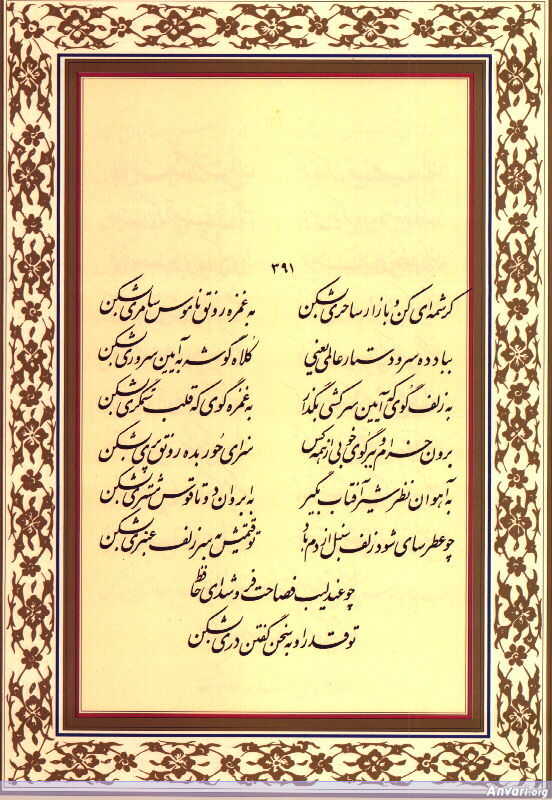 ۳۹۱
کرشمه‌ای کن و بازار ساحری بشکن به غمزه رونق ناموس سامری بشکن
بباد ده سر و دستار عالمی یعنی کلاه گوشه به آیین سروری بشکن
به زلف گوی که آیین سرکشی بگذار به غمزه گوی که قلب ستمگری بشکن
برون خرام و ببر گوی خوبی از همه کس سزای حور بده رونق پری بشکن
به آهوان نظر شیر آفتاب بگیر به ابروان دوتا قوس مشتری بشکن
چو عطرسای شود زلف سنبل از دم باد تو قیمتش به سر زلف عنبری بشکن
چو عندلیب فصاحت فروشد ای حافظ
تو قدر او به سخن گفتن دری بشکن
Anvari.org